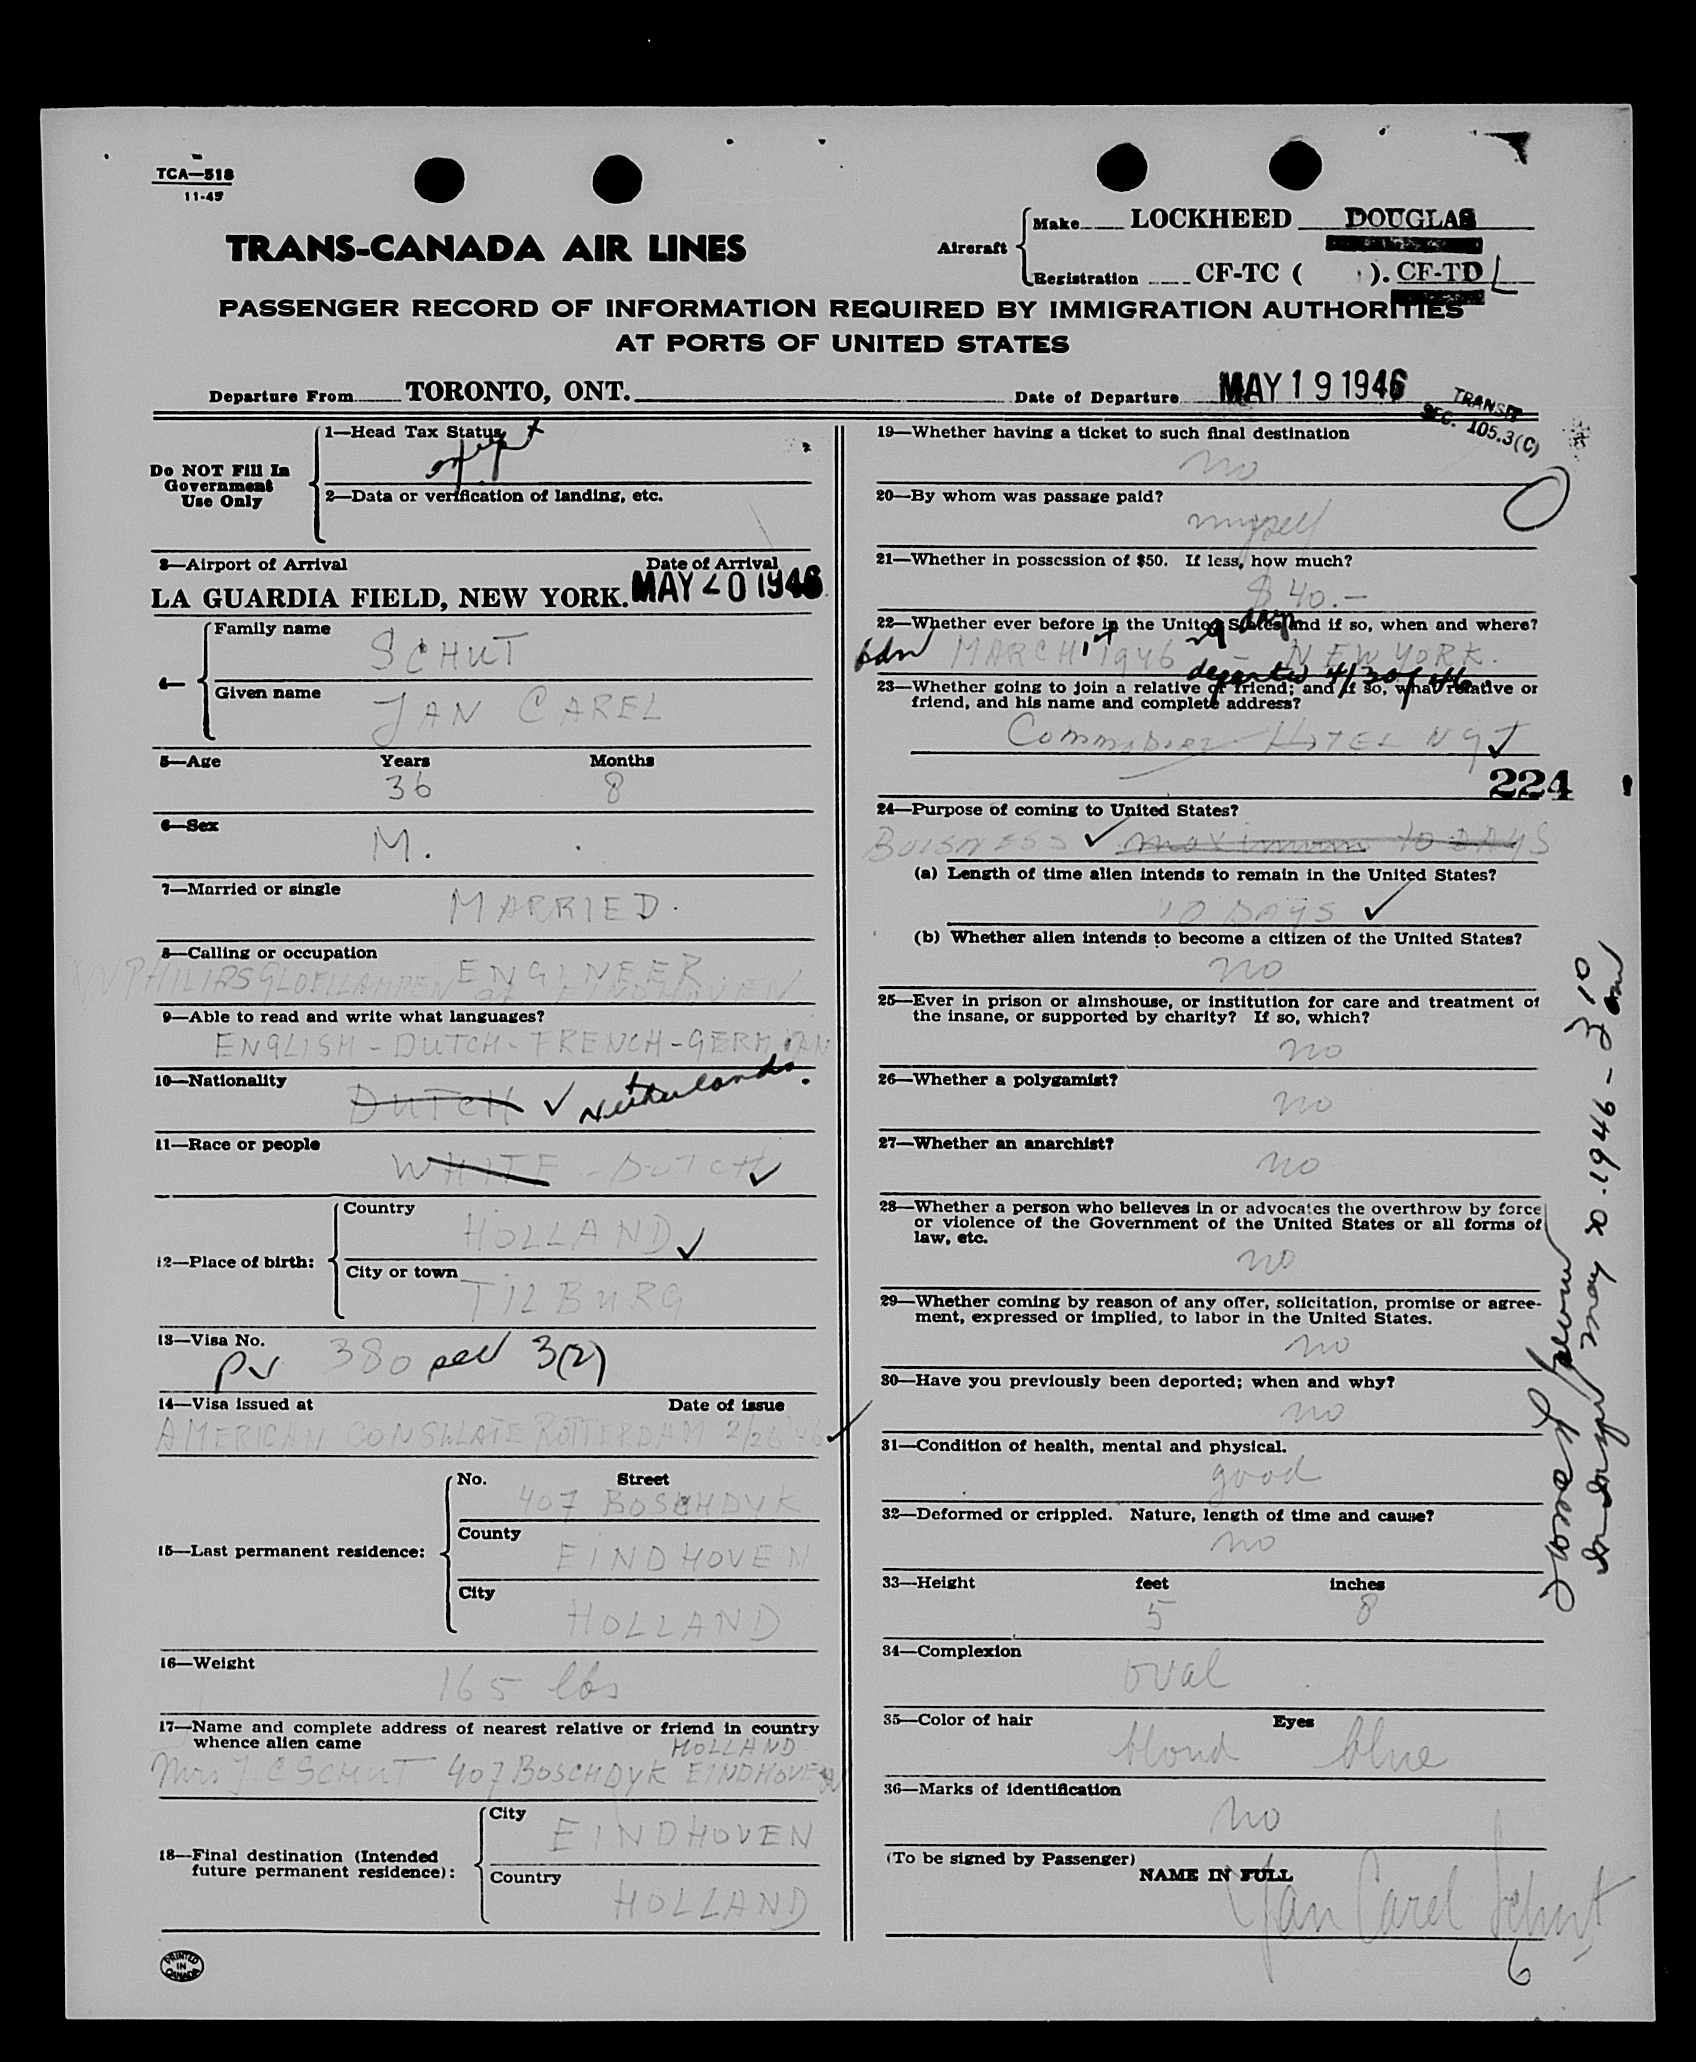 TCA—518
11-45
TRANS-CANADA AIR LINES
Aircraft
Make LOCKHEED DOUGLAS
Registration CF-TC ( ). CF-TD L
PASSENGER RECORD OF INFORMATION REQUIRED BY IMMIGRATION AUTHORITIES
AT PORTS OF UNITED STATES
Departure From TORONTO, ONT. Date of Departure MAY 19 1946
TRANSIT
SEC. 105.3(C)
Do NOT Fill In
Government
Use Only
1—Head Tax Status
2—Data or verification of landing, etc.
3—Airport of Arrival Date of Arrival
LA GUARDIA FIELD, NEW YORK. MAY 20 1946
4—
Family name
SCHUT
Given name
JAN CAREL
5—Age Years Months
36 8
6—Sex
M.
7—Married or single
MARRIED.
8—Calling or occupation
ENGINEER
NV PHILIPS GLOEILAMPEN EINDHOVEN
9—Able to read and write what languages?
ENGLISH - DUTCH - FRENCH - GERMAN
10—Nationality
DUTCH ✓ Netherlands.
11—Race or people
WHITE - DUTCH ✓
12—Place of birth:
Country
HOLLAND ✓
City or town
TILBURG
13—Visa No.
PV 380 sec 3(2)
14—Visa issued at Date of issue
AMERICAN CONSULATE ROTTERDAM 2/26 '46 ✓
15—Last permanent residence:
No. Street
407 BOSCHDYK
County
EINDHOVEN
City
HOLLAND
16—Weight
165 lbs
17—Name and complete address of nearest relative or friend in country
whence alien came
HOLLAND
Mrs J C SCHUT 407 BOSCHDYK EINDHOVEN
18—Final destination (Intended
future permanent residence):
City
EINDHOVEN
Country
HOLLAND
PRINTED
IN
CANADA
19—Whether having a ticket to such final destination
no
20—By whom was passage paid?
myself
21—Whether in possession of $50. If less, how much?
$ 40.—
22—Whether ever before in the United States and if so, when and where?
adm MARCH 1946 - NEW YORK.
departed 4/30/46
23—Whether going to join a relative or friend; and if so, what relative or
friend, and his name and complete address?
Commodore HOTEL NY ✓
224
24—Purpose of coming to United States?
BUISNESS ✓ maximum 10 DAYS
(a) Length of time alien intends to remain in the United States?
10 DAYS ✓
(b) Whether alien intends to become a citizen of the United States?
no
25—Ever in prison or almshouse, or institution for care and treatment of
the insane, or supported by charity? If so, which?
no
26—Whether a polygamist?
no
27—Whether an anarchist?
no
28—Whether a person who believes in or advocates the overthrow by force
or violence of the Government of the United States or all forms of
law, etc.
no
29—Whether coming by reason of any offer, solicitation, promise or agree-
ment, expressed or implied, to labor in the United States.
no
30—Have you previously been deported; when and why?
no
31—Condition of health, mental and physical.
good
32—Deformed or crippled. Nature, length of time and cause?
no
33—Height feet inches
5 8
34—Complexion
oval
35—Color of hair Eyes
blond blue
36—Marks of identification
no
(To be signed by Passenger)
NAME IN FULL
Jan Carel Schut
6